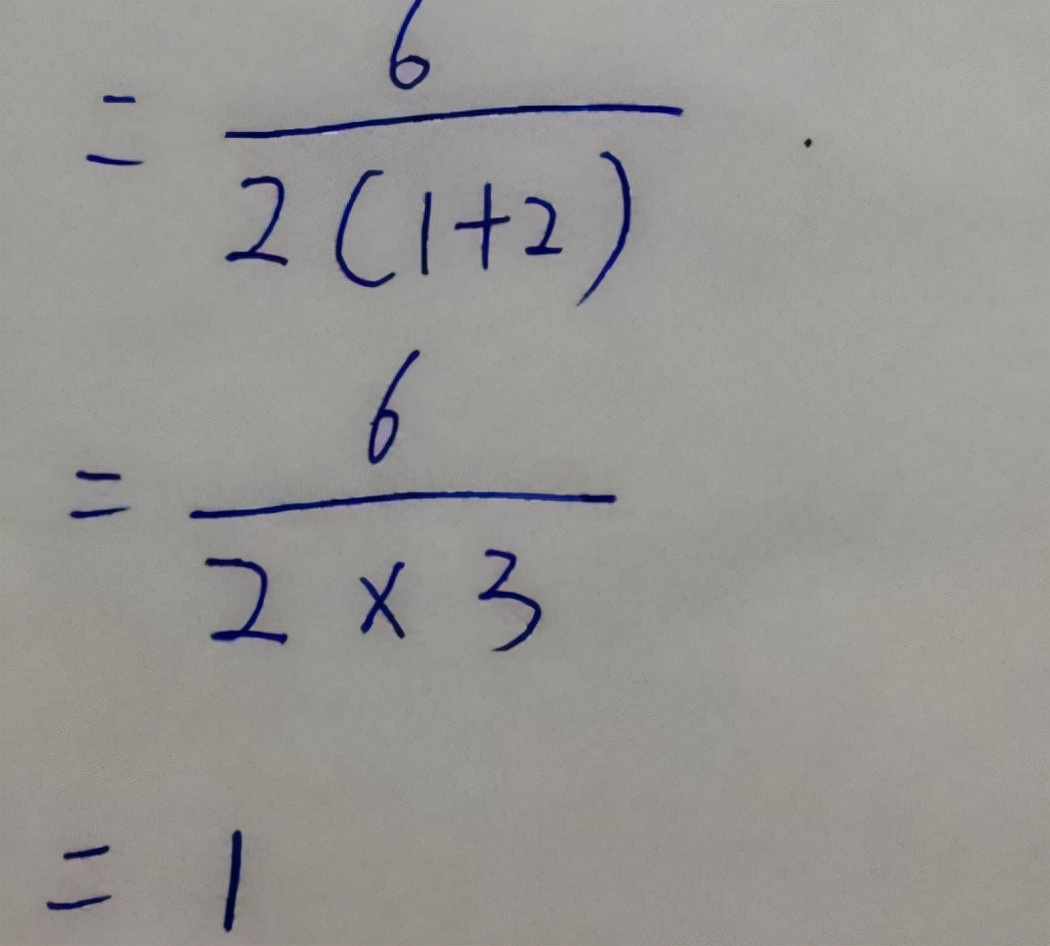 = 6 / 2(1+2)
= 6 / 2 × 3
= 1